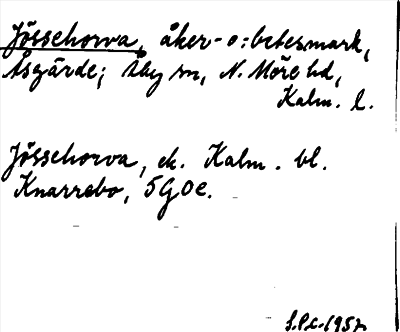 Jössehorva, åker- o. betesmark,
Åsgärde; Åby sn, N. Möre hd,
Kalm. l.
Jössehorva, ek. Kalm. bl.
Knarrebo, 5G0e.
S.P.c. 1957